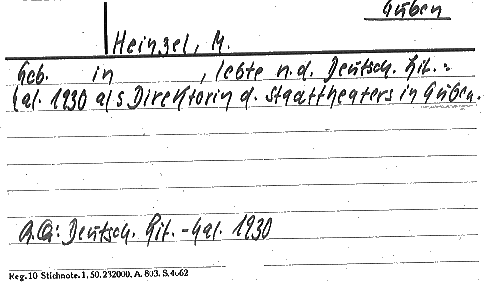 Guben
Heinzel, M.
Geb. in , lebte n.d. Deutsch. Lit.-
Kal. 1930 als Direktorin d. Stadttheaters in Guben.
A.Q: Deutsch. Lit.-Kal. 1930
Reg. 10 Stichnote. 1, 50. 232000. A. 803. S. 4662